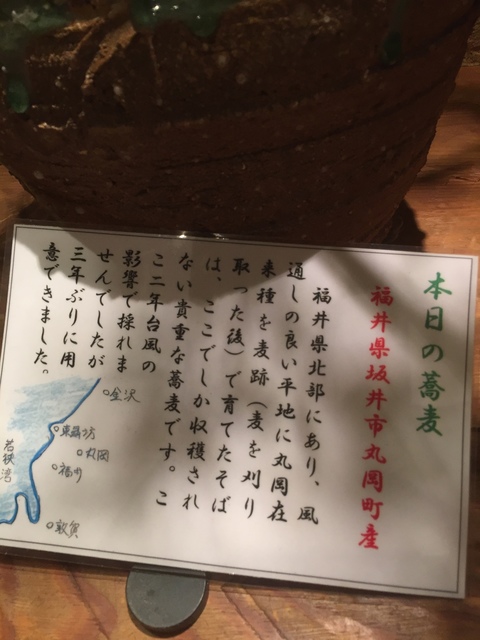 本日の蕎麦
福井県坂井市丸岡町産
福井県北部にあり、風
通しの良い平地に丸岡在
来種を麦跡（麦を刈り
取った後）で育てたそば
は、ここでしか収穫され
ない貴重な蕎麦です。こ
こ二年台風の
影響で採れま
せんでしたが
三年ぶりに用
意できました。
金沢
東尋坊
丸岡
福井
若狭湾
敦賀